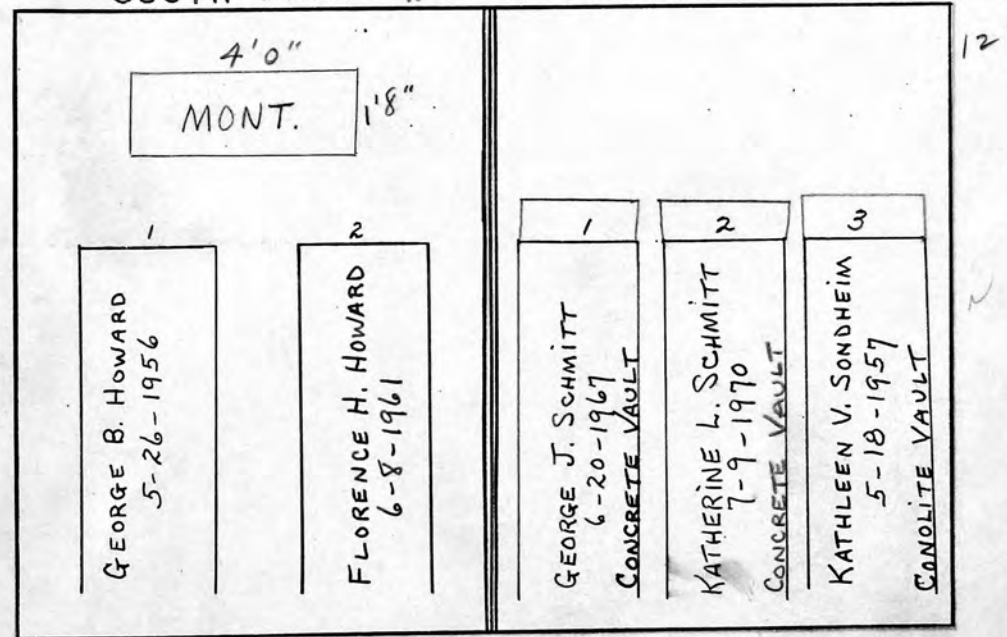 4'0"
MONT.
1'8"
12
1
GEORGE B. HOWARD
5-26-1956
2
FLORENCE H. HOWARD
6-8-1961
1
GEORGE J. SCHMITT
6-20-1967
CONCRETE VAULT
2
KATHERINE L. SCHMITT
7-9-1970
CONCRETE VAULT
3
KATHLEEN V. SONDHEIM
5-18-1957
CONOLITE VAULT